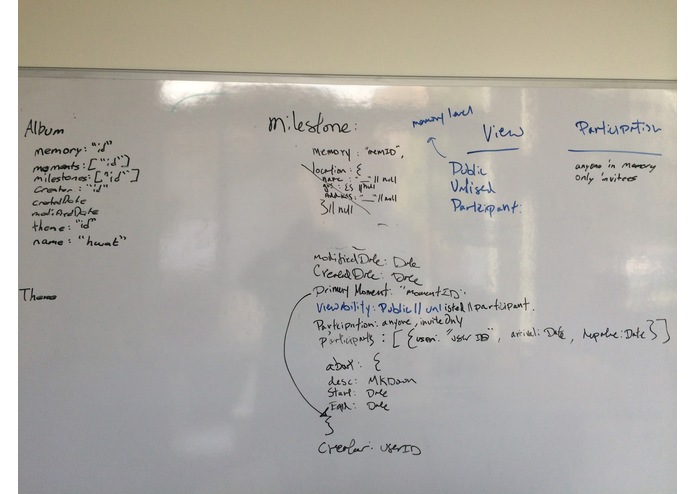 Album
memory: "id"
moments: ["id"]
milestones: ["id"]
Creator: "id"
createdDate
modifiedDate
theme: "id"
name: "hwat"
Theme
Milestone:
Memory: "memID",
location: {
name: "__" || null
gps: {} || null
Address: "__" || null
} || null
modifiedDate: Date
CreatedDate: Date
Primary Moment: "momentID"
Viewability: Public || unlisted || participant.
Participation: anyone, invite Only
participants: [{user: "User ID", arrival: Date, departure: Date}]
about: {
desc: MKDown
Start: Date
End: Date
}
Creator: userID
memory level
View
Public
Unlised
Participant
Participation
anyone in memory
only invitees